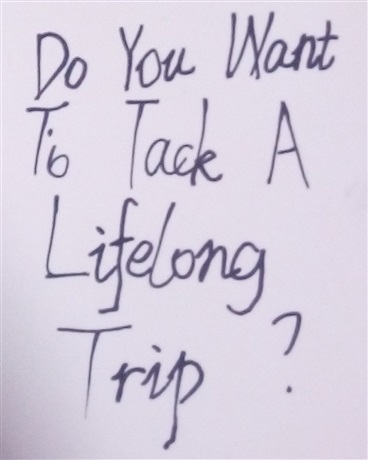 Do You Want
To Tack A
Lifelong
Trip ?